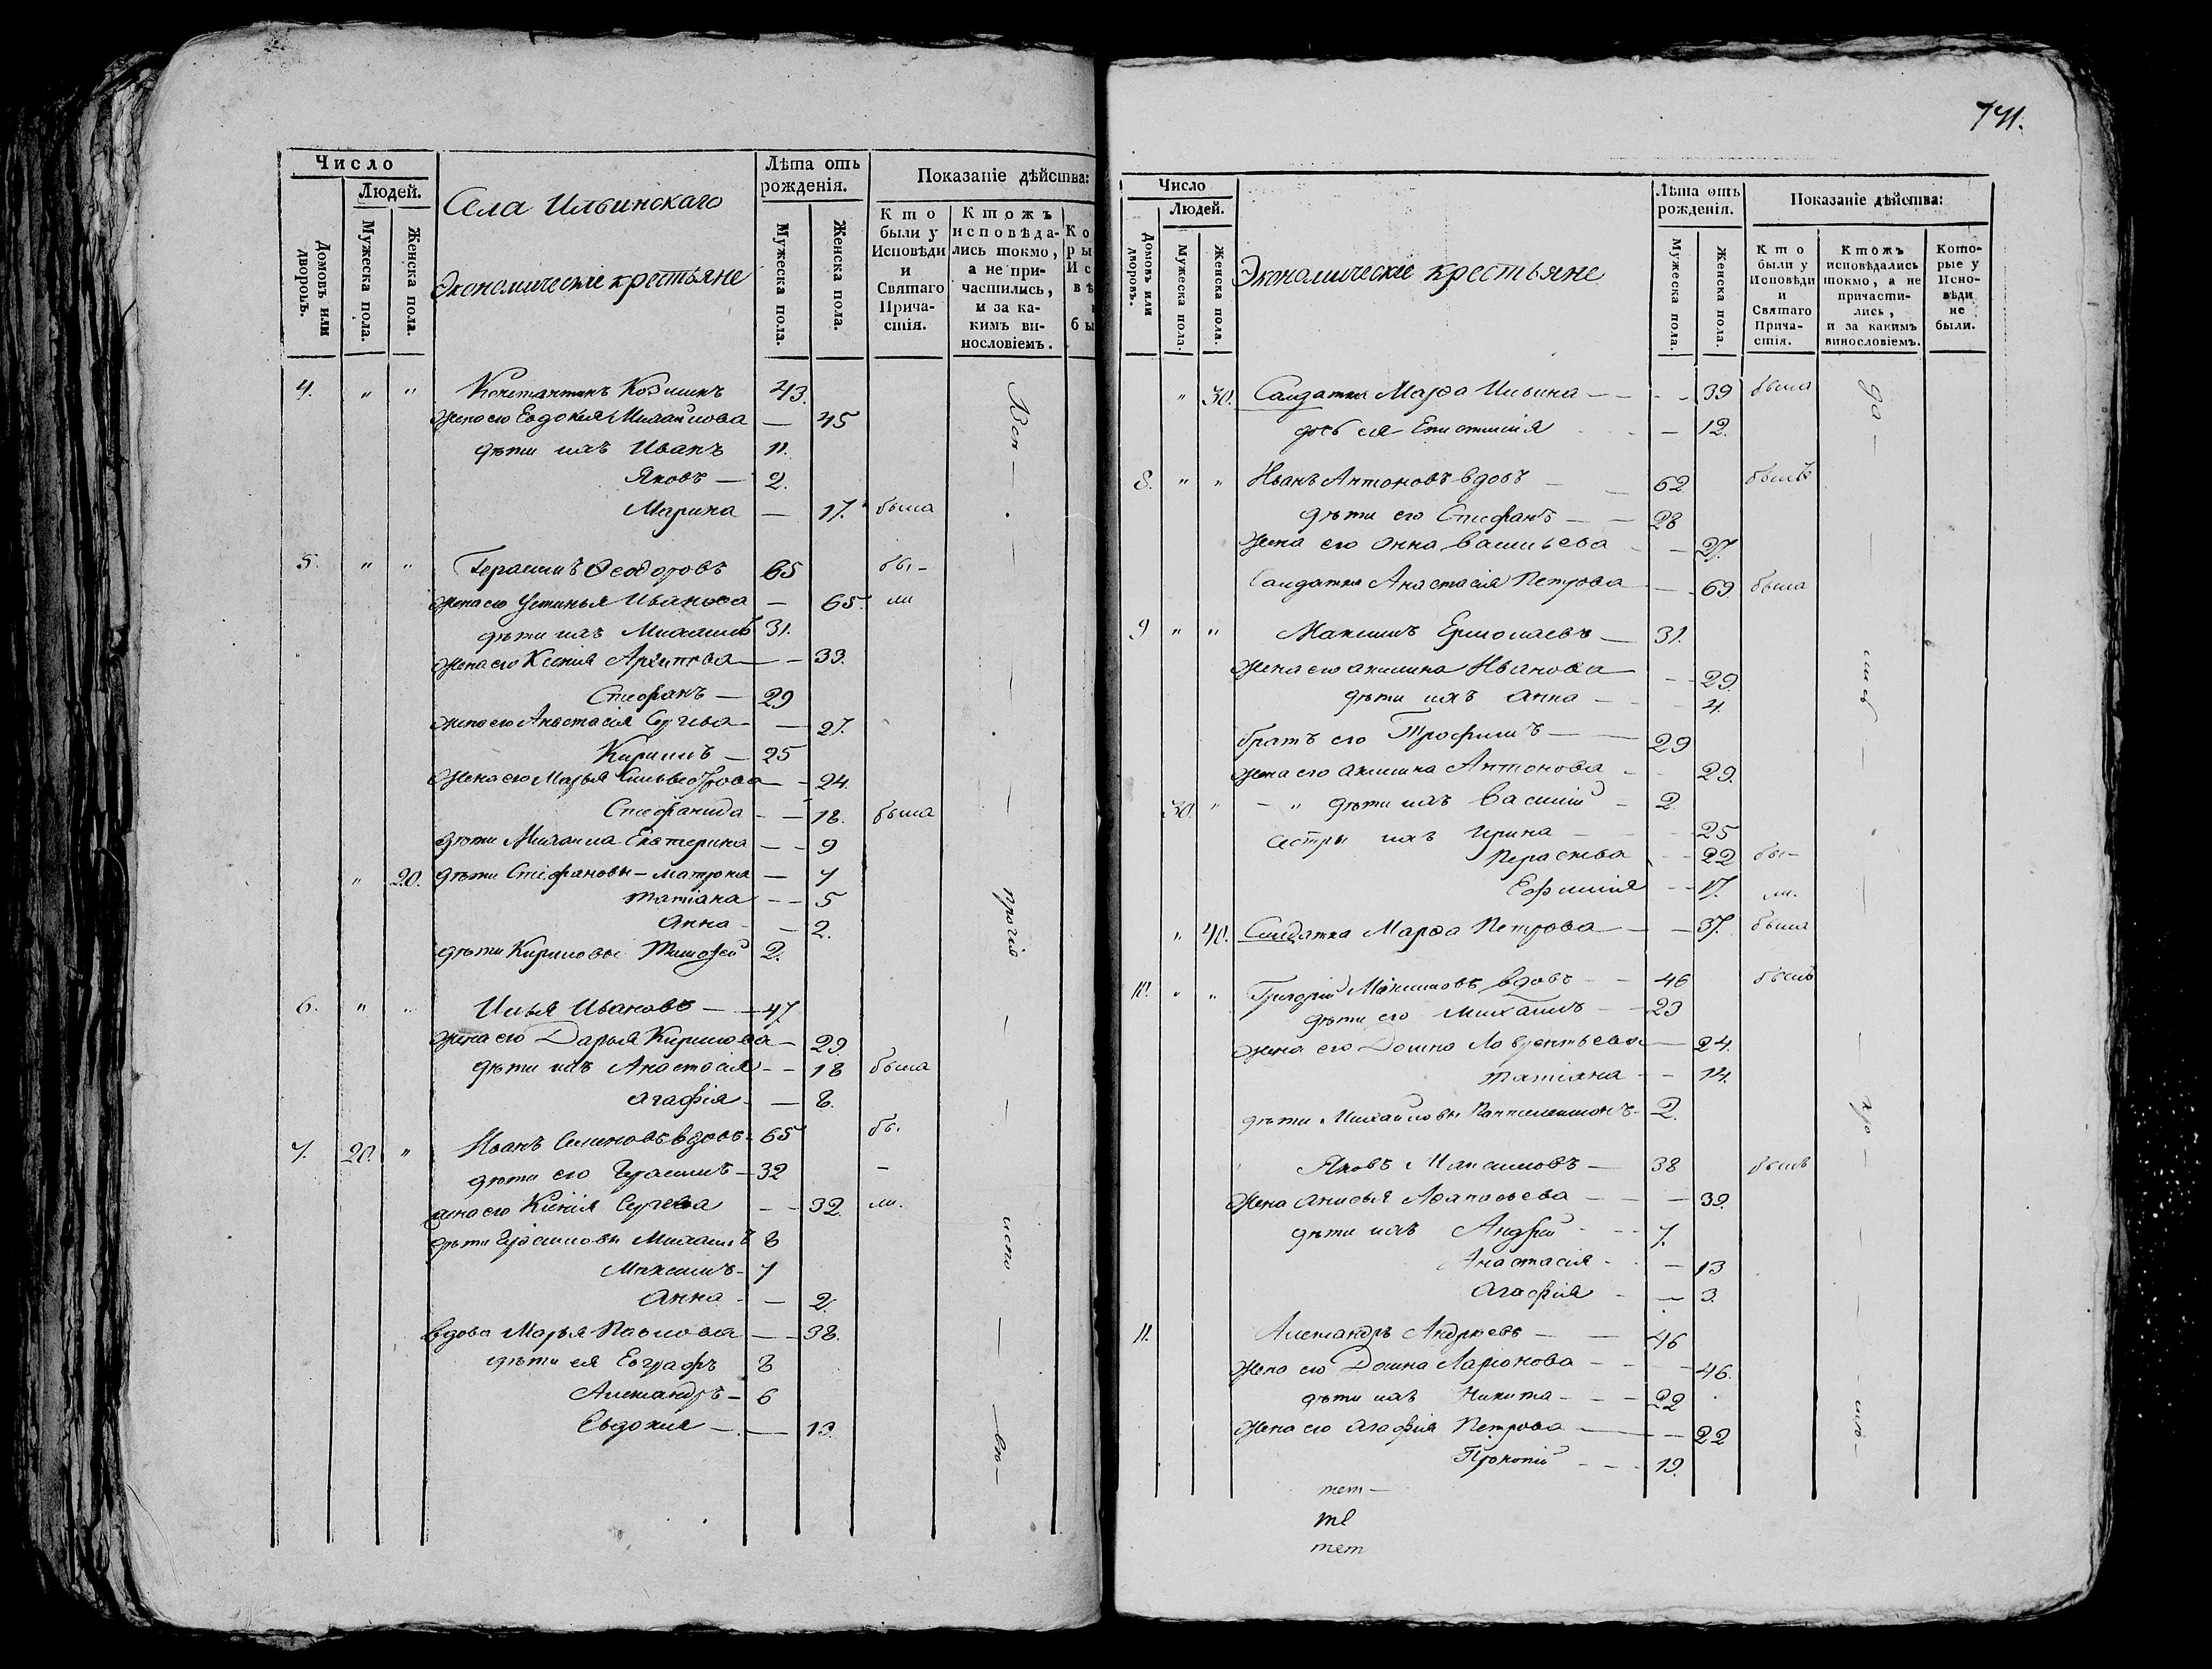 Число
Людей.
Домовъ или дворовъ.
Мужеска пола.
Женска пола.
Села Ильинскаго
Экономическіе крестьяне
Лѣта отъ рожденія.
Мужеска пола.
Женска пола.
Показаніе дѣйства:
Кто были у Исповѣди и Святаго Причастія.
Ктожъ исповѣдались токмо, а не причастились, и за какимъ винословіемъ.
4. " " Константинъ 43.
Жена его Евдокія Михайлова — 45
дѣти ихъ Иванъ 11.
Яковъ — 2.
Марина — 17. была
5. " " Герасимъ Ѳеодоровъ 65 бы-
Жена его Устинья Иванова — 65. ли
дѣти ихъ Михаилъ 31.
Жена его Ксенія Архипова — 33.
Стефанъ — 29
Жена его Анастасія — 27.
Кирилъ — 25
Жена его Марья Сильвестрова — 24.
Стефанида — 18. была
дѣти Михаила Екатерина — 9
" 20. дѣти Стефановы — Матрона — 7
Татіана — 5
Анна — 2.
дѣти Кириловы Тимофей 2.
6. " " Илья Ивановъ — 47.
Жена его Дарья Кирилова — 29
дѣти ихъ Анастасія — 18 была
Агафія — 8.
7. 20. " Иванъ Семеновъ вдовъ 65 бы-
дѣти его Герасимъ — 32 —
жена его Ксенія — 32. ли.
дѣти Герасимовы Михаилъ 8
Максимъ — 7
Анна — 2.
вдова Марья Павлова — 38.
дѣти ея Евграфъ 8
Александръ — 6
Евдокия — 13.
прочіе
испо
741.
Число
Людей.
Домовъ или дворовъ.
Мужеска пола.
Женска пола.
Экономическіе крестьяне
Лѣта отъ рожденія.
Мужеска пола.
Женска пола.
Показаніе дѣйства:
Кто были у Исповѣди и Святаго Причастія.
Ктожъ исповѣдались токмо, а не причастились, и за какимъ винословіемъ.
Которые у Исповѣди не были.
" 30. Солдатка Марѳа Ильина — 39 была
дочь ея Епистимія — 12.
8. " " Иванъ Антоновъ вдовъ — 62 былъ
дѣти его Стефанъ — 28
Жена его Анна Васильева — 27.
Солдатка Анастасія Петрова — 69 была
9 " " Максимъ Ермолаевъ — 31.
Жена его Акилина Иванова — 29.
дѣти ихъ Анна — 4.
братъ его Трофимъ — 29
Жена его Акилина Антонова — 29.
30. " — " дѣти ихъ Василій — 2.
сестры ихъ Ирина — 25
22 бы-
Евфимія — 17. ли.
" 40. Солдатка Марѳа Петрова — 37. была
10. " " Григорій Максимовъ вдовъ — 46 былъ
дѣти его Михаилъ — 23
Жена его Домна Лаврентьева — 24.
Татіана — 14.
дѣти Михаиловы Пантелеимонъ — 2.
Яковъ Максимовъ — 38 былъ
Жена Анисья Аѳанасьева — 39.
дѣти ихъ Андрей — 7.
Анастасія — 13
Агафія — 3.
11. Александръ Андреевъ — 46
Жена его Домна Ларіонова — 46.
дѣти ихъ Никита — 22
Жена его Агафія Петрова — 22
Прокопій — 19.